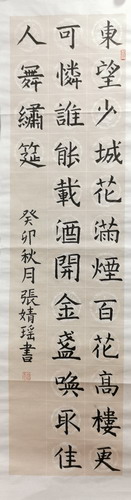 東望少城花滿煙百花高樓更
可憐誰能載酒開金盞喚取佳
人舞繡筵
癸卯秋月張婧瑶書